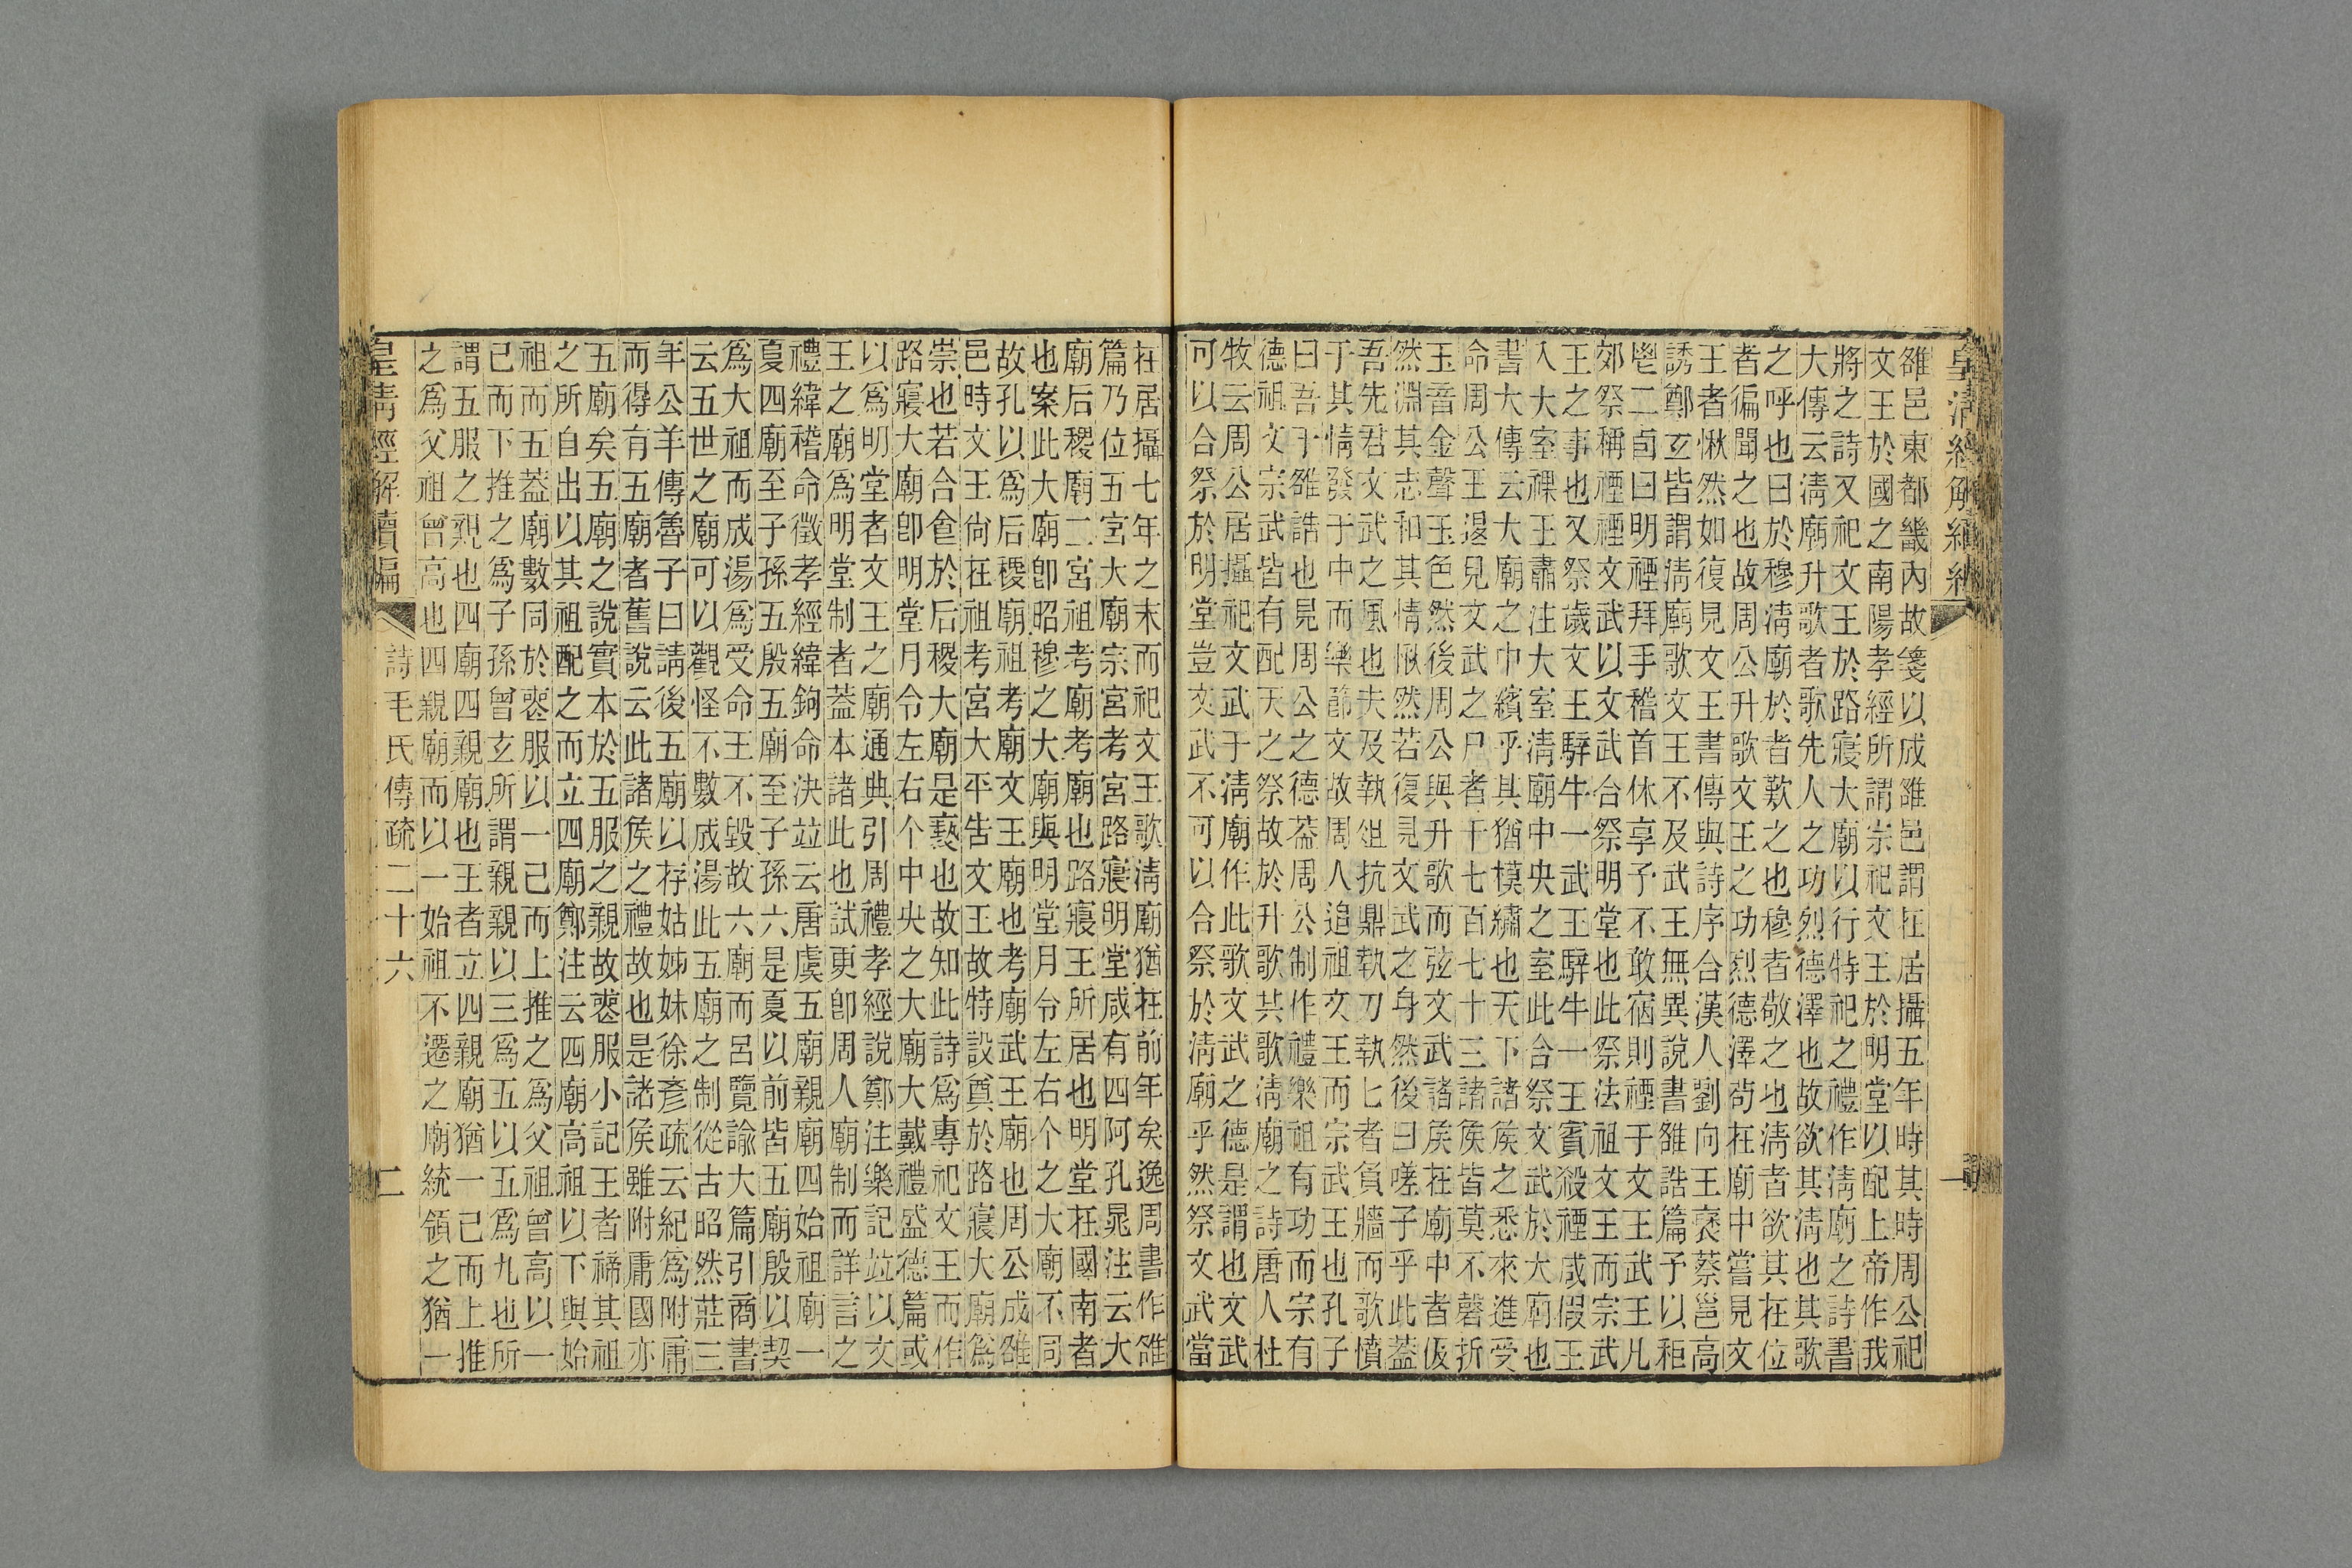 皇清經解續編
雒邑東都畿內故箋以成雒邑謂在居攝五年時其時周公祀
文王於國之南陽孝經所謂宗祀文王於明堂以配上帝作我
將之詩又祀文王於路寢大廟以行特祀之禮作淸廟之詩書
大傳云淸廟升歌者歌先人之功烈德澤也故欲其淸也其歌
之呼也曰於穆淸廟於者歎之也穆者敬之也淸者欲其在位
者徧聞之也故周公升歌文王之功烈德澤茍在廟中嘗見文
王者愀然如復見文王書傳與詩序合漢人劉向王襃蔡邕高
誘鄭玄皆謂淸廟歌文王不及武王無異說書雒誥篇予以秬
鬯二卣曰明禋拜手稽首休享予不敢宿則禋于文王武王凡
郊祭稱禋禋文武以文武合祭明堂也此祭法祖文王而宗武
王之事也又祭歲文王騂牛一武王騂牛一王賓殺禋咸假王
入大室祼王肅注大室淸廟中央之室此合祭文武於大廟也
書大傳云大廟之中繽乎其猶模繡也天下諸侯之悉來進受
命周公王退見文武之尸者千七百七十三諸侯皆莫不磬折
玉音金聲玉色然後周公與升歌而弦文武諸侯在廟中者伋
然淵其志和其情愀然若復見文武之身然後曰嗟子乎此蓋
吾先君文武之風也夫及執俎抗鼎執刀執匕者負牆而歌憤
于其情發于中而樂節文故周人追祖文王而宗武王也孔子
曰吾于雒誥也見周公之德蓋周公制作禮樂祖有功而宗有
德祖文宗武皆有配天之祭故於升歌其歌淸廟之詩唐人杜
牧云周公居攝祀文武于淸廟作此歌文武之德是謂也文武
可以合祭於明堂豈文武不可以合祭於淸廟乎然祭文武當
在居攝七年之末而祀文王歌淸廟猶在前年矣逸周書作雒
篇乃位五宮大廟宗宮考宮路寢明堂咸有四阿孔晁注云大
廟后稷廟二宮祖考廟考廟也路寢王所居也明堂在國南者
也案此大廟卽昭穆之大廟與明堂月令左右个之大廟不同
故孔以爲后稷廟祖考廟文王廟也考廟武王廟也周公成雒
邑時文王尙在祖考宮大平告文王故特設奠於路寢大廟爲
崇也若合㑹於后稷大廟是褻也故知此詩爲專祀文王而作
路寢大廟卽明堂月令左右个中央之大廟大戴禮盛德篇或
以爲明堂者文王之廟通典引周禮孝經說鄭注樂記竝以文
王之廟爲明堂制者蓋本諸此也試更卽周人廟制而詳言之
禮緯稽命徵孝經緯鉤命決竝云唐虞五廟親廟四始祖廟一
夏四廟至子孫五殷五廟至子孫六是夏以前皆五廟殷以契
爲大祖而成湯爲受命王不毀故六廟而呂覽諭大篇引商書
云五世之廟可以觀怪不數成湯此五廟之制從古昭然莊三
年公羊傳魯子曰請後五廟以存姑姊妹徐彥疏云紀爲附庸
而得有五廟者舊說云此諸侯之禮故也是諸侯雖附庸國亦
五廟矣五廟之說實本於五服之親故喪服小記王者禘其祖
之所自出以其祖配之而立四廟鄭注云四廟高祖以下與始
祖而五蓋廟數同於喪服以一己而上推之爲父祖曾高以一
已而下推之爲子孫曾玄所謂親親以三爲五以五爲九也所
謂五服之親也四廟四親廟也王者立四親廟猶一己而上推
之爲父祖曾高也四親廟而以一始祖不遷之廟統領之猶一
皇淸經解續編
詩毛氏傳疏二十六
二